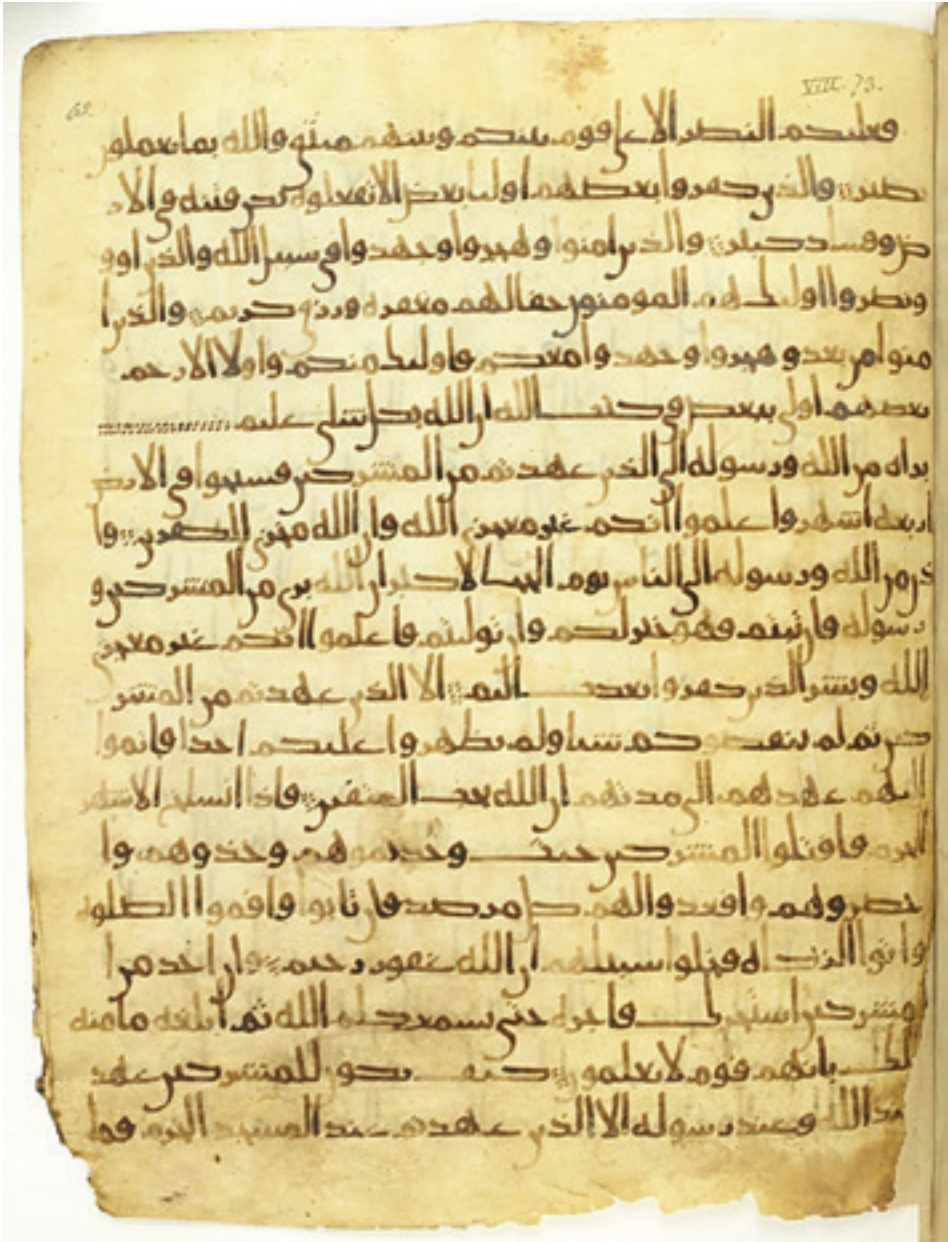 69 VIII. 73.
فعليكم النصر الا على قوم بينكم وبينهم ميثق والله بما تعملون
بصير والذين كفروا بعضهم اوليا بعض الا تفعلوه تكن فتنة في الار
ض وفساد كبير والذين امنوا وهجروا وجهدوا في سبيل الله والذين اوو
ونصروا اوليك هم المومنون حقا لهم مغفرة ورزق كريم والذين ا
منوا من بعد وهجروا وجهدوا معكم فاوليك منكم واولا الارحم
بعضهم اولى ببعض في كتب الله ان الله بكل شاي عليم
براه من الله ورسوله الى الذين عهدتم من المشركين فسيحوا في الارض
اربعة اشهر واعلموا انكم غير معجزي الله وان الله مخزي الكفرين وا
ذن من الله ورسوله الى الناس يوم الحج الاكبر ان الله بري من المشركين و
رسوله فان تبتم فهو خير لكم وان توليتم فاعلموا انكم غير معجزي
الله وبشر الذين كفروا بعذب اليم الا الذين عهدتم من المشر
كين ثم لم ينقصوكم شيا ولم يظهروا عليكم احدا فاتموا
اليهم عهدهم الى مدتهم ان الله يحب المتقين فاذا انسلخ الاشهر
الحرم فاقتلوا المشركين حيث وجدتموهم وخذوهم وا
حصروهم واقعدوا لهم كل مرصد فان تابوا واقموا الصلوة
واتوا الزكاه فخلوا سبيلهم ان الله غفور رحيم وان احد من ا
لمشركين استجرك فاجره حتى يسمع كلم الله ثم ابلغه مامنه
ذلك بانهم قوم لا يعلمون كيف يكون للمشركين عهد
عند الله وعند رسوله الا الذين عهدتم عند المسجد الحرم فما